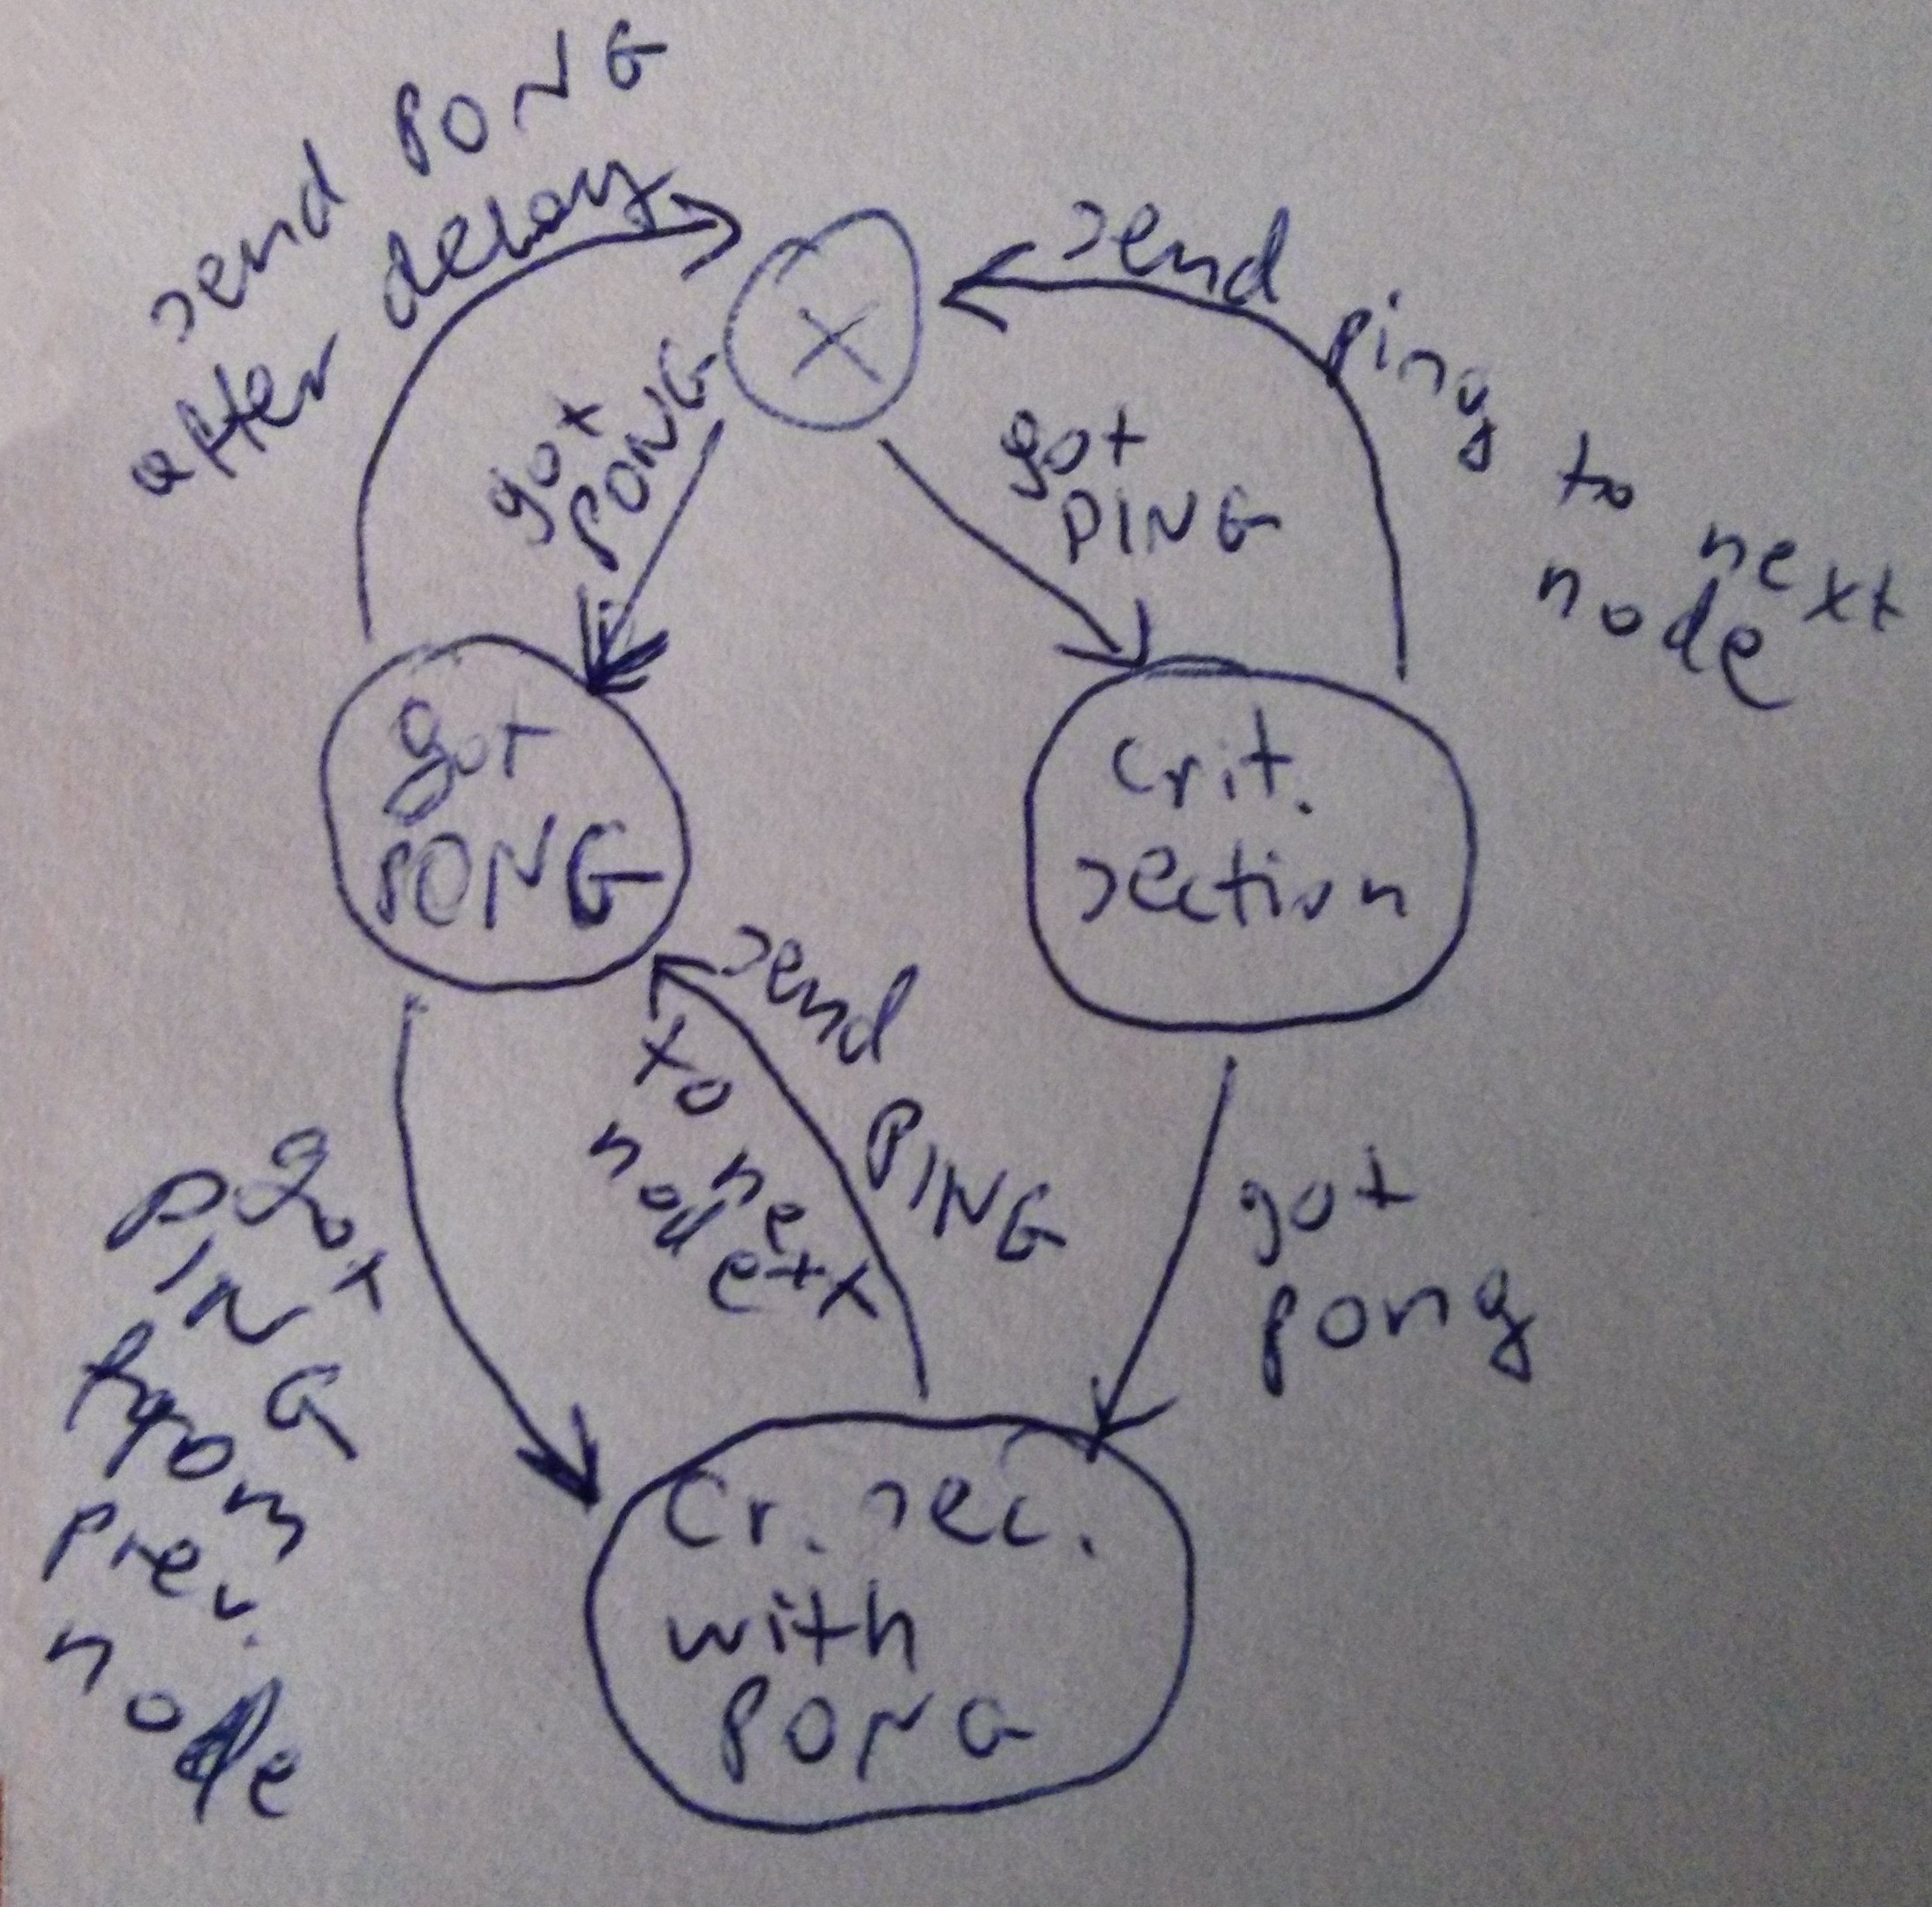 send PONG
after delay
X
send ping to next
node
got
PONG
got
PING
got
PONG
crit.
section
send PING
to next
node
got
PING
from
prev.
node
got
pong
Cr. sec.
with
PONG